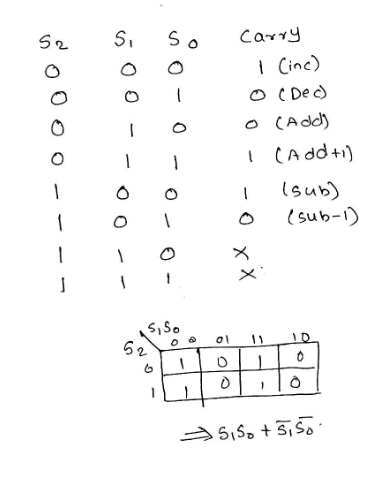 S2 S1 S0 Carry
0 0 0 1 (inc)
0 0 1 0 (Dec)
0 1 0 0 (Add)
0 1 1 1 (Add+1)
1 0 0 1 (sub)
1 0 1 0 (sub-1)
1 1 0 x
1 1 1 x
S1S0
S2 00 01 11 10
0 1 0 1 0
1 1 0 1 0
⇒ S1S0 + S̅1S̅0